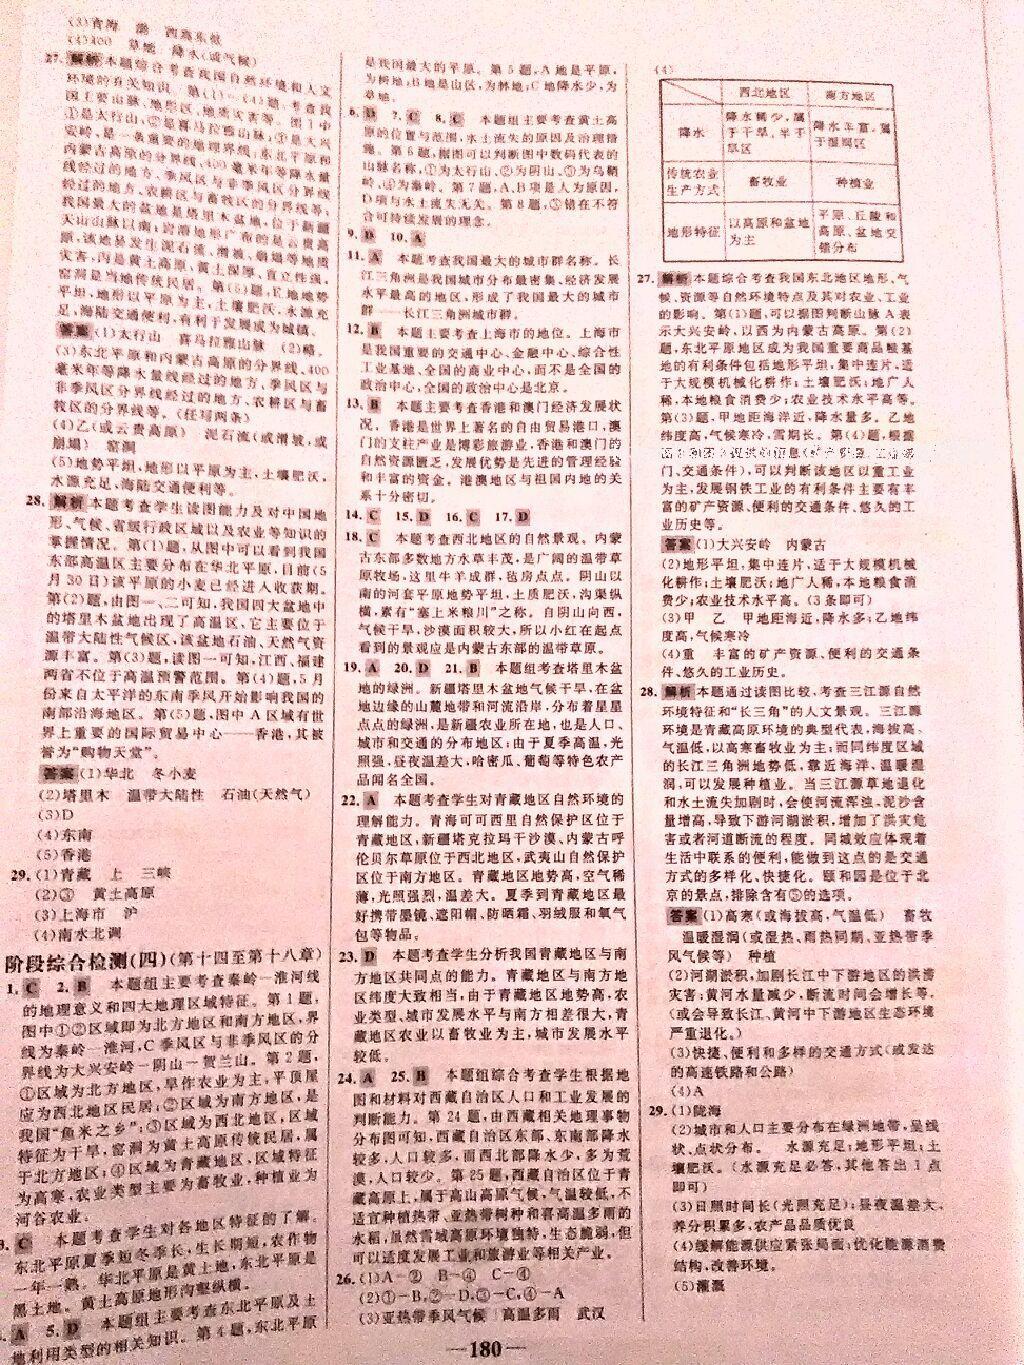 (3)青海 渤 西藏东侧
(4)400 草地 降水(或气候)
27. 解析 本题综合考查我国自然环境和人文
环境的有关知识。第(1)~(4)题,考查我
国主要山脉、地形区、地质灾害等。图1中
①是太行山,②是喜马拉雅山脉;③是大兴
安岭,是一条重要的地理界线,东北平原和
内蒙古高原的分界线,400毫米年等降水量
线经过的地方、季风区与非季风区分界线
经过的地方、农耕区与畜牧区的分界线等;
我国最大的盆地是塔里木盆地,位于新疆
天山山脉以南;岩溶地形广布的是云贵高
原,该地易发生泥石流、滑坡、崩塌等地质
灾害。丙是黄土高原,黄土深厚,直立性强,
窑洞是当地传统民居。第(5)题,E地地势
平坦,地形以平原为主,土壤肥沃,水源充
足,海陆交通便利,有利于发展成为城镇。
答案 (1)太行山 喜马拉雅山脉 (2)略。
(3)东北平原和内蒙古高原的分界线、400
毫米年等降水量线经过的地方、季风区与
非季风区分界线经过的地方、农耕区与畜
牧区的分界线等。(任写两条)
(4)乙(或云贵高原) 泥石流(或滑坡,或
崩塌) 窑洞
(5)地势平坦,地形以平原为主,土壤肥沃,
水源充足,海陆交通便利等。
28. 解析 本题考查学生读图能力及对中国地
形、气候、省级行政区域以及农业等知识的
掌握情况。第(1)题,从图中可以看到我国
东部高温区主要分布在华北平原,目前(5
月30日)该平原的小麦已经进入收获期。
第(2)题,由图一、二可知,我国四大盆地中
的塔里木盆地出现了高温区,它主要位于
温带大陆性气候区,该盆地石油、天然气资
源丰富。第(3)题,读图一可知,江西、福建
两省不位于高温预警范围。第(4)题,5月
份来自太平洋的东南季风开始影响我国的
南部沿海地区。第(5)题,图中A区域有世
界上重要的国际贸易中心——香港,其被
誉为“购物天堂”。
答案 (1)华北 冬小麦
(2)塔里木 温带大陆性 石油(天然气)
(3)D
(4)东南
(5)香港
29. (1)青藏 上 三峡
(2)③ 黄土高原
(3)上海市 沪
(4)南水北调
阶段综合检测(四)(第十四至第十八章)
1. C 2. B 本题组主要考查秦岭—淮河线
的地理意义和四大地理区域特征。第1题,
图中①②区域即为北方地区和南方地区,界
线为秦岭—淮河,C季风区与非季风区的分
界线为大兴安岭—阴山—贺兰山。第2题,
①区域为北方地区,旱作农业为主,平顶屋
应为西北地区民居;②区域为南方地区,是
我国“鱼米之乡”;③区域为西北地区,区域
特征为干旱,窑洞为黄土高原传统民居,属
于北方地区;④区域为青藏地区,区域特征
为高寒,农业类型主要为畜牧业,种植业为
河谷农业。
3. C 本题考查学生对各地区特征的了解。
东北平原夏季短冬季长,生长期短,农作物
一年一熟。华北平原是黄土地,东北平原是
黑土地。黄土高原地形沟壑纵横。
4. A 5. D 本题组主要考查东北平原及土
地利用类型的相关知识。第4题,东北平原
是我国最大的平原。第5题,A地是平原,
为耕地;B地是山区,为林地;C地降水少,为
草地。
6. D 7. C 8. C 本题组主要考查黄土高
原的位置与范围,水土流失的原因及治理措
施。第6题,据图可以判断图中数码代表的
山脉名称,①为太行山,②为阴山,③为乌鞘
岭,④为秦岭。第7题,A、B项是人为原因,
D项与水土流失无关。第8题,③错在不符
合可持续发展的理念。
9. D 10. A
11. A 本题考查我国最大的城市群名称。长
江三角洲是我国城市分布最密集、经济发展
水平最高的地区,形成了我国最大的城市
群——长江三角洲城市群。
12. B 本题主要考查上海市的地位。上海市
是我国重要的交通中心、金融中心、综合性
工业基地、全国的商业中心,而不是全国的
政治中心,全国的政治中心是北京。
13. B 本题主要考查香港和澳门经济发展状
况。香港是世界上著名的自由贸易港口,澳
门的支柱产业是博彩旅游业,香港和澳门的
自然资源匮乏,发展优势是先进的管理经验
和丰富的资金。港澳地区与祖国内地的关
系十分密切。
14. C 15. D 16. C 17. D
18. C 本题考查西北地区的自然景观。内蒙
古东部多数地方水草丰茂,是广阔的温带草
原牧场,这里牛羊成群,毡房点点。阴山以
南的河套平原地势平坦,土质肥沃,沟渠纵
横,素有“塞上米粮川”之称。自阴山向西,
气候干旱,沙漠面积较大,所以小红在起点
看到的景观应是内蒙古东部的温带草原。
19. A 20. D 21. B 本题组考查塔里木盆
地的绿洲。新疆塔里木盆地气候干旱,在盆
地边缘的山麓地带和河流沿岸,分布着星星
点点的绿洲,是新疆农业所在地,也是人口、
城市和交通的分布地区;由于夏季高温,光
照强,昼夜温差大,哈密瓜、葡萄等特色农产
品闻名全国。
22. A 本题考查学生对青藏地区自然环境的
理解能力。青海可可西里自然保护区位于
青藏地区,新疆塔克拉玛干沙漠、内蒙古呼
伦贝尔草原位于西北地区,武夷山自然保护
区位于南方地区。青藏地区地势高,空气稀
薄,光照强烈,温差大。夏季到青藏地区最
好携带墨镜、遮阳帽、防晒霜、羽绒服和氧气
包等物品。
23. D 本题考查学生分析我国青藏地区与南
方地区共同点的能力。青藏地区与南方地
区纬度大致相当,由于青藏地区地势高,农
业类型、城市发展水平与南方相差很大,青
藏地区农业以畜牧业为主,城市发展水平
较低。
24. A 25. B 本题组综合考查学生根据地
图和材料对西藏自治区人口和工业发展的
判断能力。第24题,由西藏相关地理事物
分布图可知,西藏自治区东部、东南部降水
较多,人口较多,而西北部降水少,多为荒
漠,人口较少。第25题,西藏自治区位于青
藏高原上,属于高山高原气候,气温较低,不
适宜种植热带、亚热带树种和喜高温多雨的
水稻,虽然雪域高原环境独特,生态脆弱,但
可以适度发展工业和旅游业等相关产业。
26. (1)A—② B—④ C—④
(2)①—B,②—D,③—C,④—A
(3)亚热带季风气候 高温多雨 武汉
(4)
西北地区 南方地区
降水 降水稀少,属于干旱、半干旱区 降水丰富,属于湿润区
传统农业生产方式 畜牧业 种植业
地形特征 以高原和盆地为主 平原、丘陵和高原、盆地交错分布
27. 解析 本题综合考查我国东北地区地形、气
候、资源等自然环境特点及其对农业、工业
的影响。第(1)题,可以据图判断山脉A表
示大兴安岭,以西为内蒙古高原。第(2)
题,东北平原地区成为我国重要商品粮基
地的有利条件包括地形平坦,集中连片,适
于大规模机械化耕作;土壤肥沃;地广人
稀,本地粮食消费少;农业技术水平高等。
第(3)题,甲地距海洋近,降水量多。乙地
纬度高,气候寒冷,雪期长。第(4)题,根据
门、交通条件),可以判断该地区以重工业
为主,发展钢铁工业的有利条件主要有丰
富的矿产资源、便利的交通条件、悠久的工
业历史等。
答案 (1)大兴安岭 内蒙古
(2)地形平坦,集中连片,适于大规模机械
化耕作;土壤肥沃;地广人稀,本地粮食消
费少;农业技术水平高。(3条即可)
(3)甲 乙 甲地距海近,降水多;乙地纬
度高,气候寒冷
(4)重 丰富的矿产资源、便利的交通条
件、悠久的工业历史。
28. 解析 本题通过读图比较,考查三江源自然
环境特征和“长三角”的人文景观。三江源
环境是青藏高原环境的典型代表,海拔高、
气温低,以高寒畜牧业为主;而同纬度区域
的长江三角洲地势低、靠近海洋,温暖湿
润,可以发展种植业。当三江源草地退化
和水土流失加剧时,会使河流浑浊,泥沙含
量增高,导致下游河湖淤积,增加了洪灾危
害或者河道断流的程度。同城效应体现着
生活中联系的便利,能做到这点的是交通
方式的多样化、快捷化。颐和园是位于北
京的景点,排除含有⑤的选项。
答案 (1)高寒(或海拔高,气温低) 畜牧
温暖湿润(或湿热,雨热同期,亚热带季
风气候等) 种植
(2)河湖淤积,加剧长江中下游地区的洪涝
灾害;黄河水量减少,断流时间会增长等,
(或会导致长江、黄河中下游地区生态环境
严重退化。)
(3)快捷、便利和多样的交通方式(或发达
的高速铁路和公路)
(4)A
29. (1)陇海
(2)城市和人口主要分布在绿洲地带,呈线
状、点状分布。 水源充足;地形平坦;土
壤肥沃。(水源充足必答,其他答出1点
即可)
(3)日照时间长(光照充足);昼夜温差大,
养分积累多,农产品品质优良
(4)缓解能源供应紧张局面;优化能源消费
结构,改善环境。
(5)灌溉
—180—